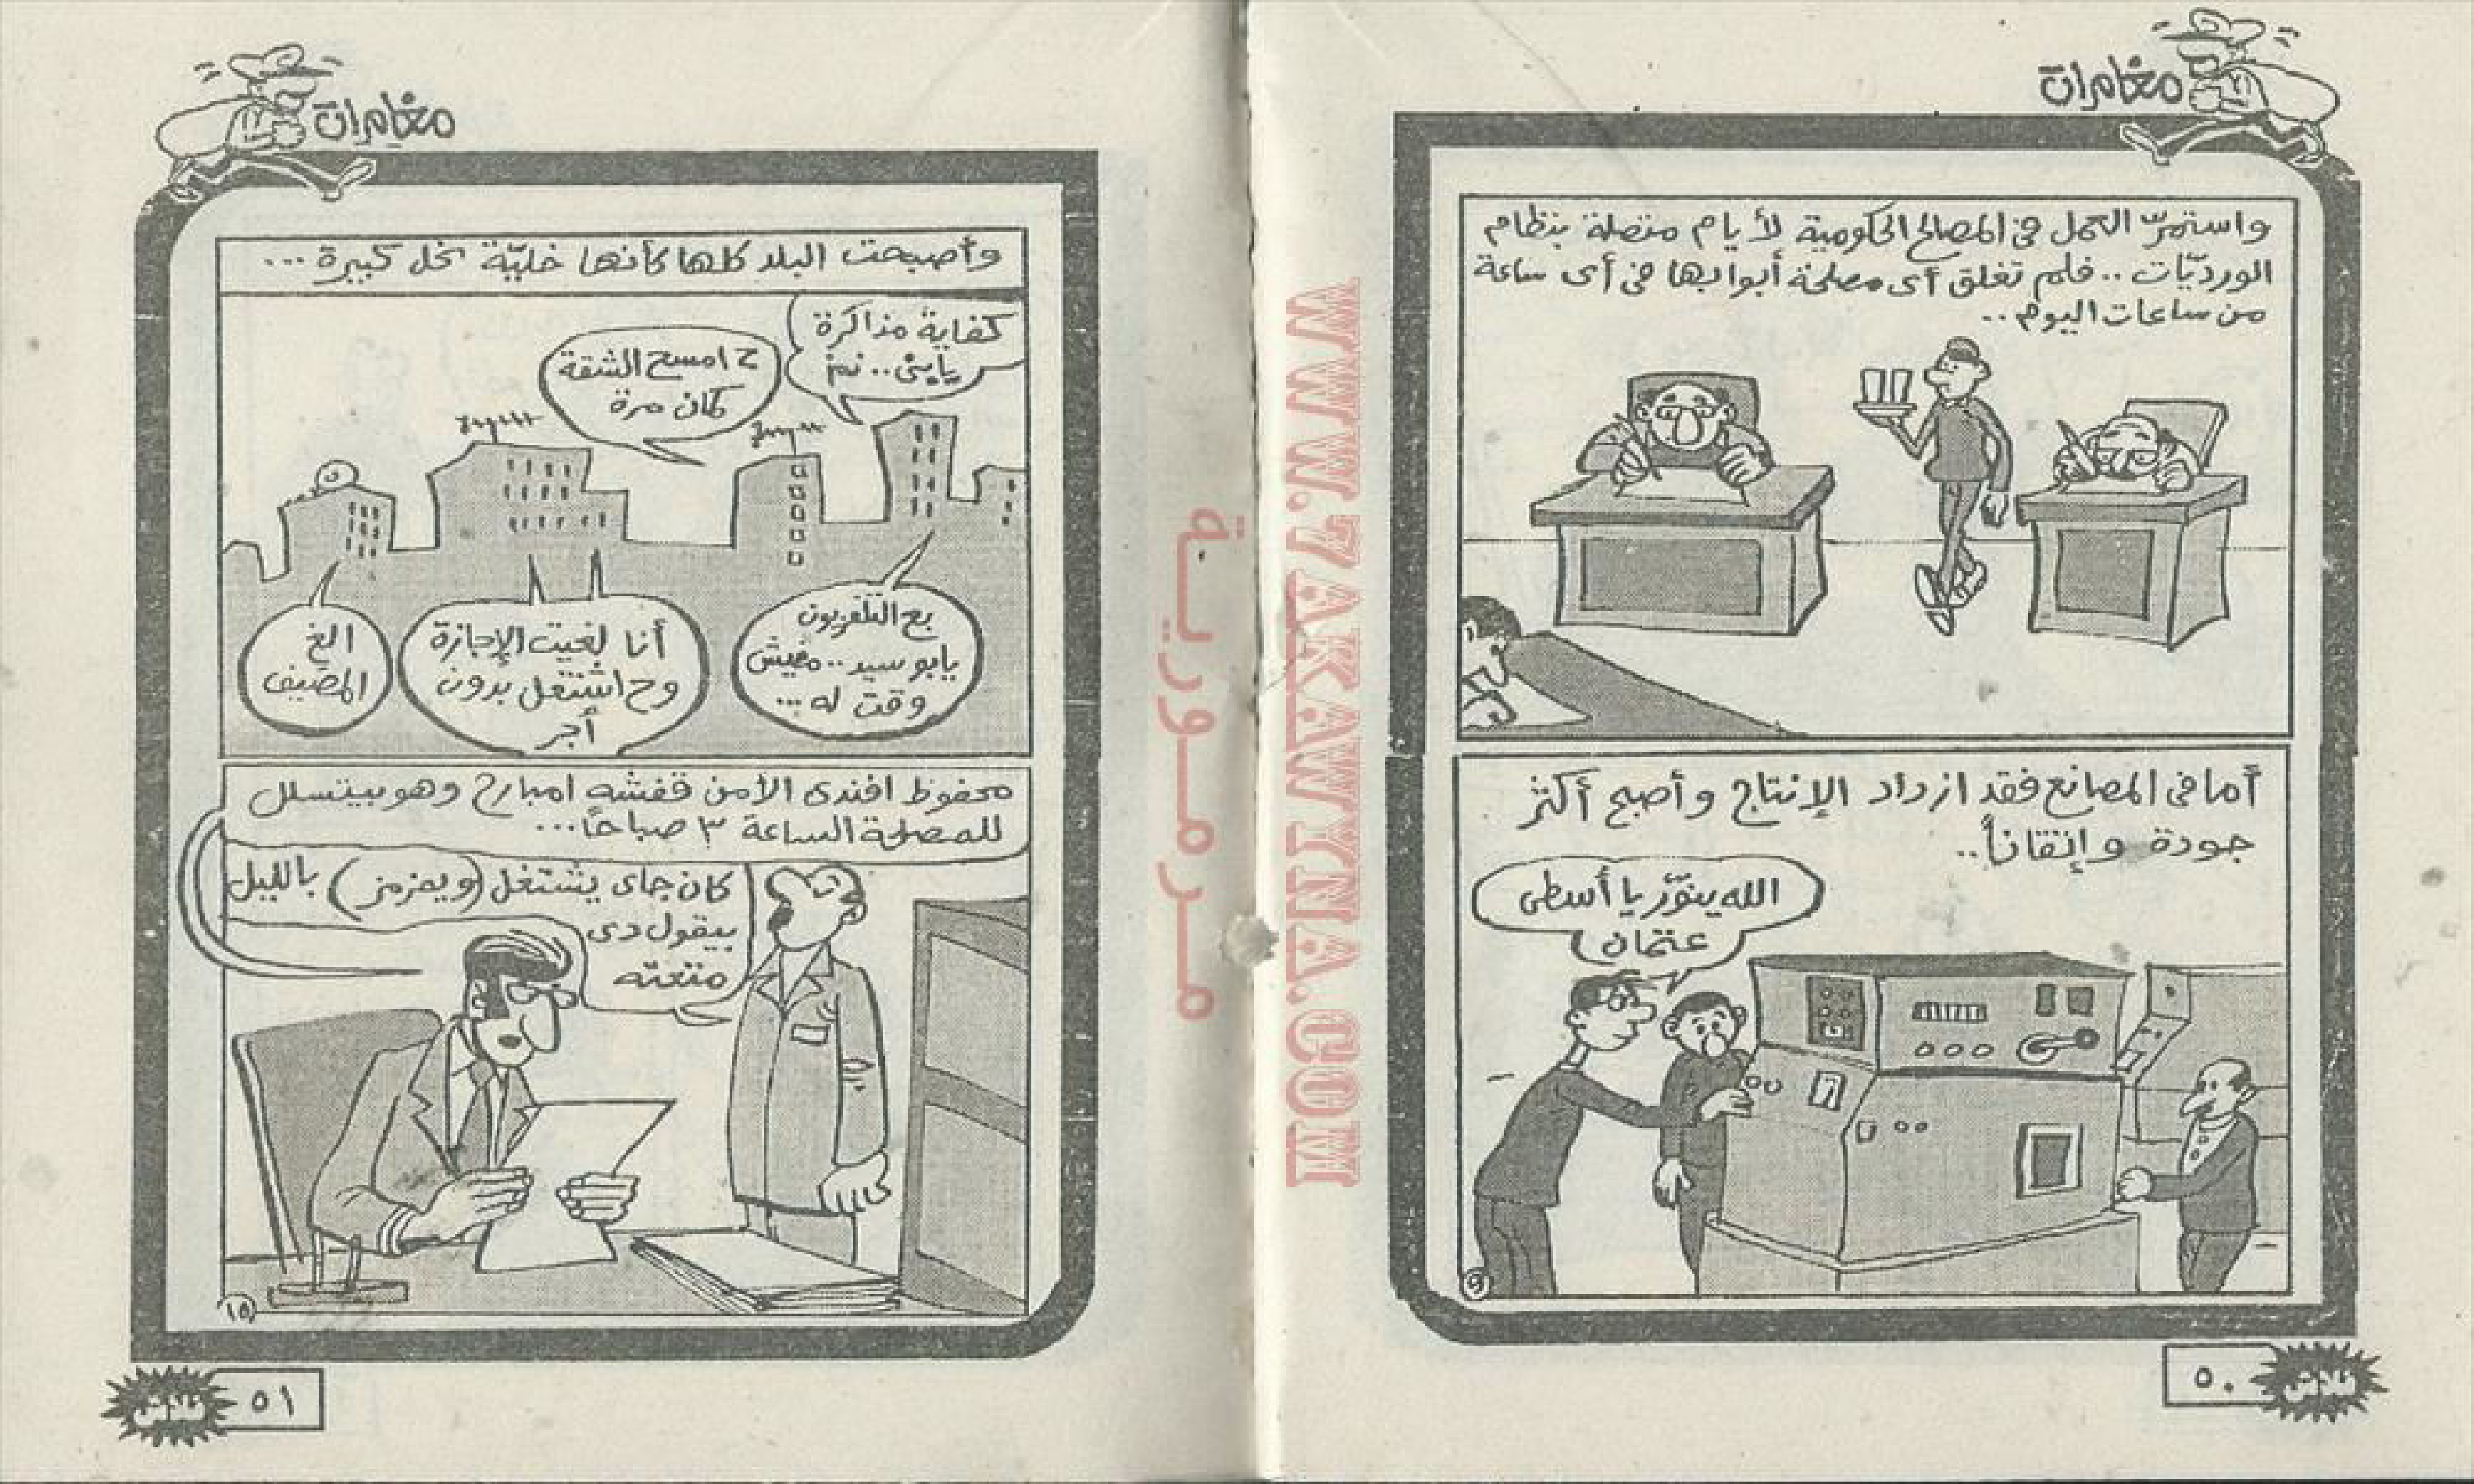 مغامرات
واستمرّ العمل في المصالح الحكومية لأيام متصلة بنظام
الورديّات .. فلم تغلق أى مصلحة أبوابها فى أى ساعة
من ساعات اليوم ..
أما فى المصانع فقد ازداد الإنتاج وأصبح أكثر
جودة وإتقاناً ..
الله ينوّر يا أسطى
عتمان
٥٠
فلاش
مغامرات
وأصبحت البلد كلها كأنها خليّة نحل كبيرة ...
كفاية مذاكرة
يابنى .. نم
ح امسح الشقة
كمان مرة
بع التلفزيون
يابو سيد .. مفيش
وقت له ...
أنا لغيت الإجازة
وح اشتغل بدون
أجر
الغ
المصيف
محفوظ افندى الأمن قفشه امبارح وهو بيتسلل
للمصلحة الساعة ٣ صباحاً ...
كان جاى يشتغل (ويمزمز) بالليل
بيقول دى
متعته
٥١
فلاش
مرمورية
WWW.7AKAWYINA.COM